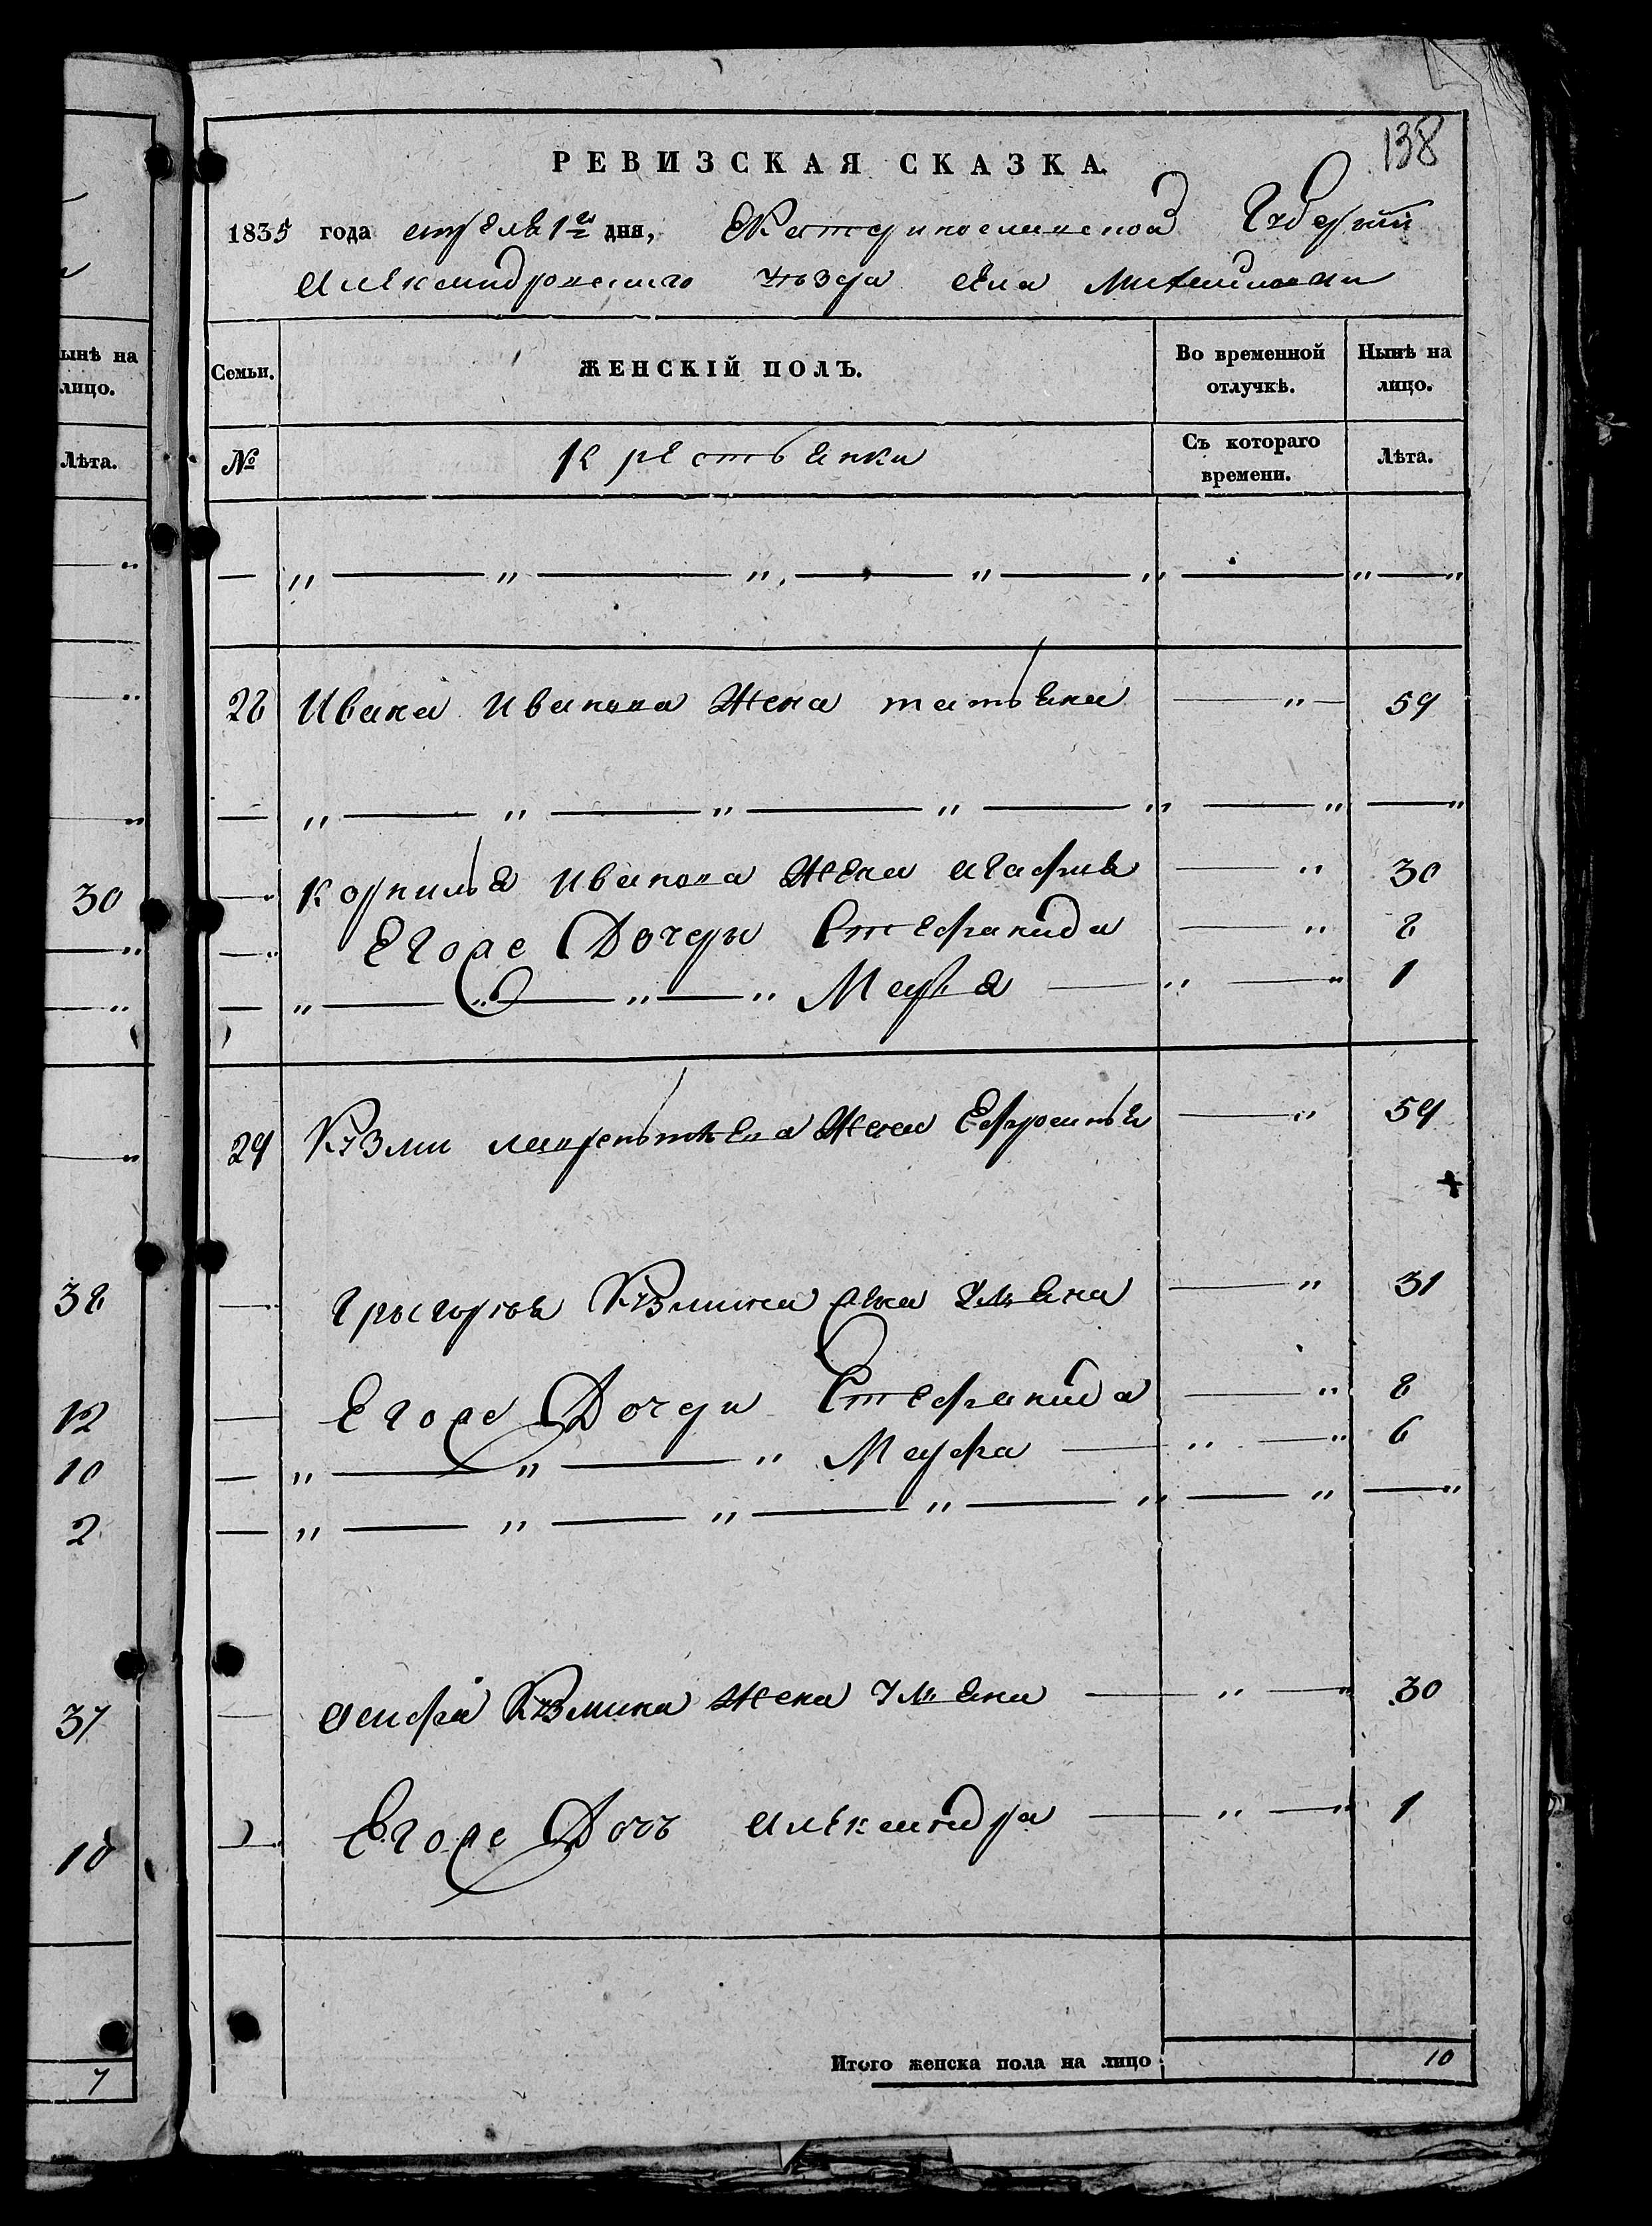 138
РЕВИЗСКАЯ СКАЗКА.
1835 года апреля 1го дня, Екатеринославской Губернии
Александровского уезда села Михайловки
Семьи. ЖЕНСКІЙ ПОЛЪ. Во временной отлучкѣ. Нынѣ на лицо.
№ Крестьянки Съ котораго времени. Лѣта.
— „ — „ — „ — „ — „ — „ — „
28 Ивана Иванова Жена татьяна — „ — 59
— „ — „ — „ — „ — „ — „ — „
— Корнилья Иванова Жена агафия — „ 30
— Егоже Дочеры Стефанида — „ 8
— „ — „ — „ — „ Марья — „ — „ 1
29 Кузми Жена — „ 59
— Грыгорья Кузмина жена Ульяна — „ 31
— Егоже Дочери Стефанида — „ 8
— „ — „ — „ Марфа — „ — „ 6
— „ — „ — „ — „ — „ — „ — „
— Кузмина Жена Ульяна — „ — „ 30
— Егоже Дочъ александра — „ — „ 1
Итого женска пола на лицо 10
ынѣ на
лицо.
Лѣта.
30
38
12
10
2
37
10
7